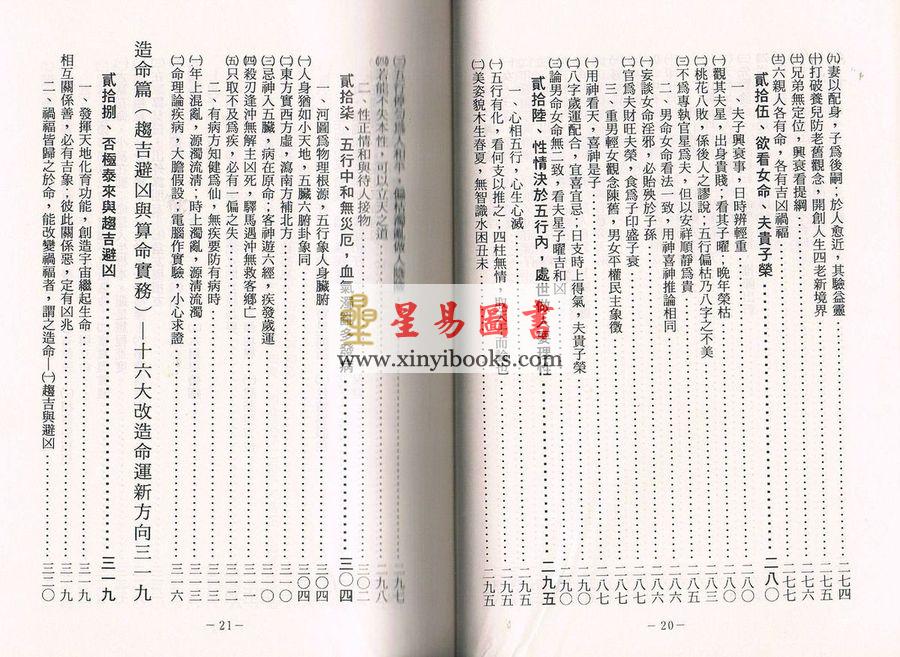 ㈨妻以配身，子爲後嗣；於人愈近，其驗益靈………二七四
㈩打破養兒防老舊觀念，開創人生四老新境界………二七七
兄弟無定位，興衰看提綱………二七七
六親人各有命，各有吉凶禍福………二七七
貳拾伍、欲看女命、夫貴子榮………二八〇
一、夫子興衰事，日時辨輕重………二八〇
㈠觀其夫星，出身貴賤，看其子曜；晚年榮枯
㈡桃花八敗，係後人之謬說；五行偏枯乃八字之不美
㈢不爲專執官星爲夫，但以安祥順靜爲貴
二、男命女命看法一致，用神喜神推論相同
㈠妄談女命淫邪，必貽殃於子孫
㈡官爲夫財旺夫榮，食爲子印盛子衰
三、重男輕女觀念陳舊，男女平權民主象徵
㈠用神看天，喜神是子
㈡八字歲運配合，宜喜宜忌；日支時上得氣，夫貴子榮
㈢論男命女命無二致，看夫星子曜吉和凶………二九〇
貳拾陸、性情決於五行內，處世做人要理性………二九五
一、心相五行，心生心滅………二九五
㈠五行有化，看何支以推之，四柱無情，
㈡美姿貌木生春夏，無智識水困丑未………二九五
－20－
㈢五行停勻爲人和平，偏枯濁亂做人陰險………二九七
㈣若能不失本性，可以立人之道………二九八
二、性正情和與待人接物………三〇二
貳拾柒、五行中和無災厄，血氣濁亂多發病………三〇四
一、河圖爲物理根源，五行象人身臟腑………三〇四
㈠人身猶如小天地，五臟六腑卦象同
㈡東方實西方虛，瀉南方補北方
㈢忌神入五臟，病在原命；客神遊六經，疾發歲運
㈣殺刃逢沖無解主凶死，驛馬遇沖無救客鄉亡
㈤只取不及爲疾，必有一偏之失
二、有病方知健爲仙，無疾要防有病時
㈠年上混亂，源濁流清；時上濁亂，源清流濁
㈡命理論疾病，大膽假設；電腦作實驗，小心求證………三一六
造命篇（趨吉避凶與算命實務）—十六大改造命運新方向三一九
貳拾捌、否極泰來與趨吉避凶………三一九
一、發揮天地化育功能，創造宇宙繼起生命………三一八
相互關係善，必有吉象；彼此關係惡，定有凶兆………三一九
二、禍福皆歸之於命，能改變禍福者，謂之造命—㈠趨吉與避凶………三二〇
－21－
星易圖書
www.xinyibooks.com